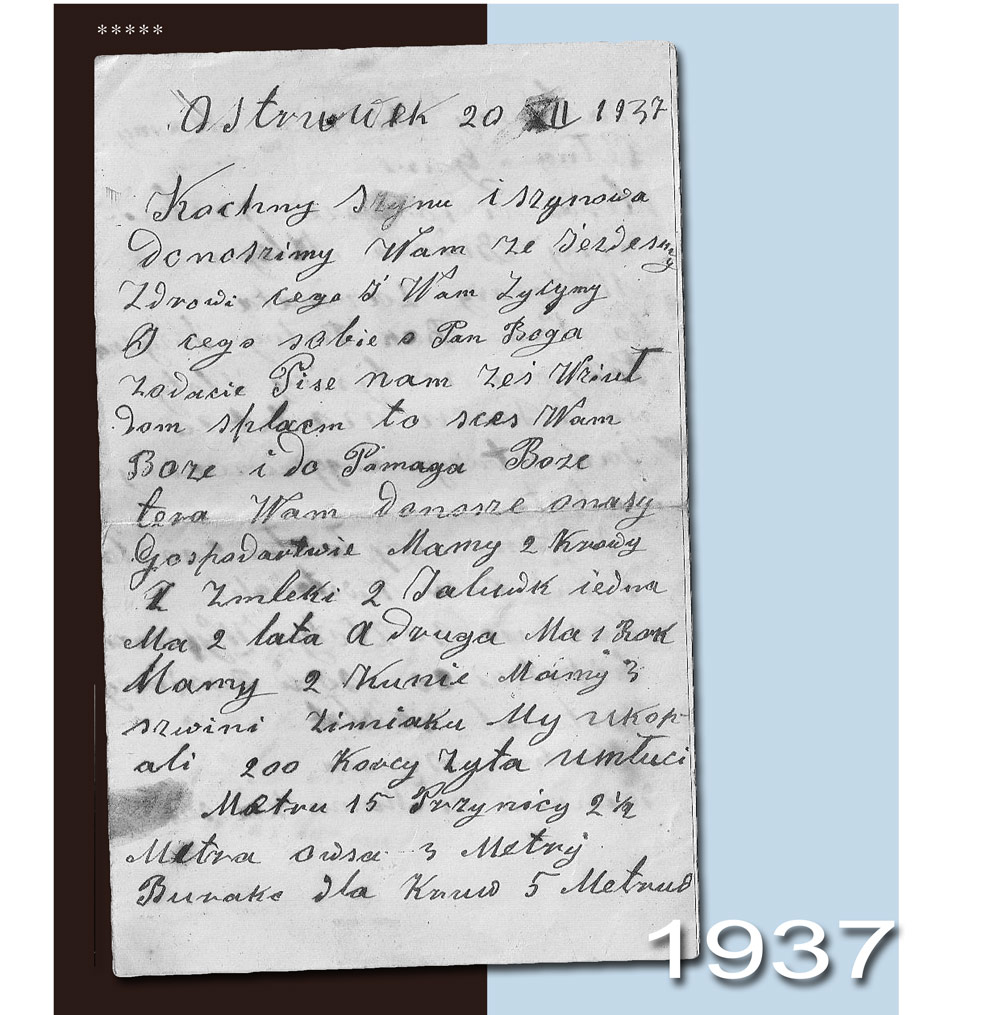 *****
Ostruwek 20 XII 1937
Kochny szynu i szynowa
donoszimy Wam ze jezdeszmy
Zdrowi cego i Wam Zycymy
O cego sobie o Pan Boga
zodacie Pise nam zes Wziuł
dom spłacm to sces Wam
Boze i do Pomaga Boze
tera Wam donosze onaszy
Gospodartwie Mamy 2 Krowy
Z Zmleki 2 Jaluwk iedna
Ma 2 lata A druga Ma 1 Rok
Mamy 2 Kunie Mamy 3
szwini Zimiaku My ukop-
ali 200 Korcy Zyta umłuci
Metru 15 Przynicy 2 ½
Metra owsa 3 Metry
Burake dla Kruw 5 Metruw
1937